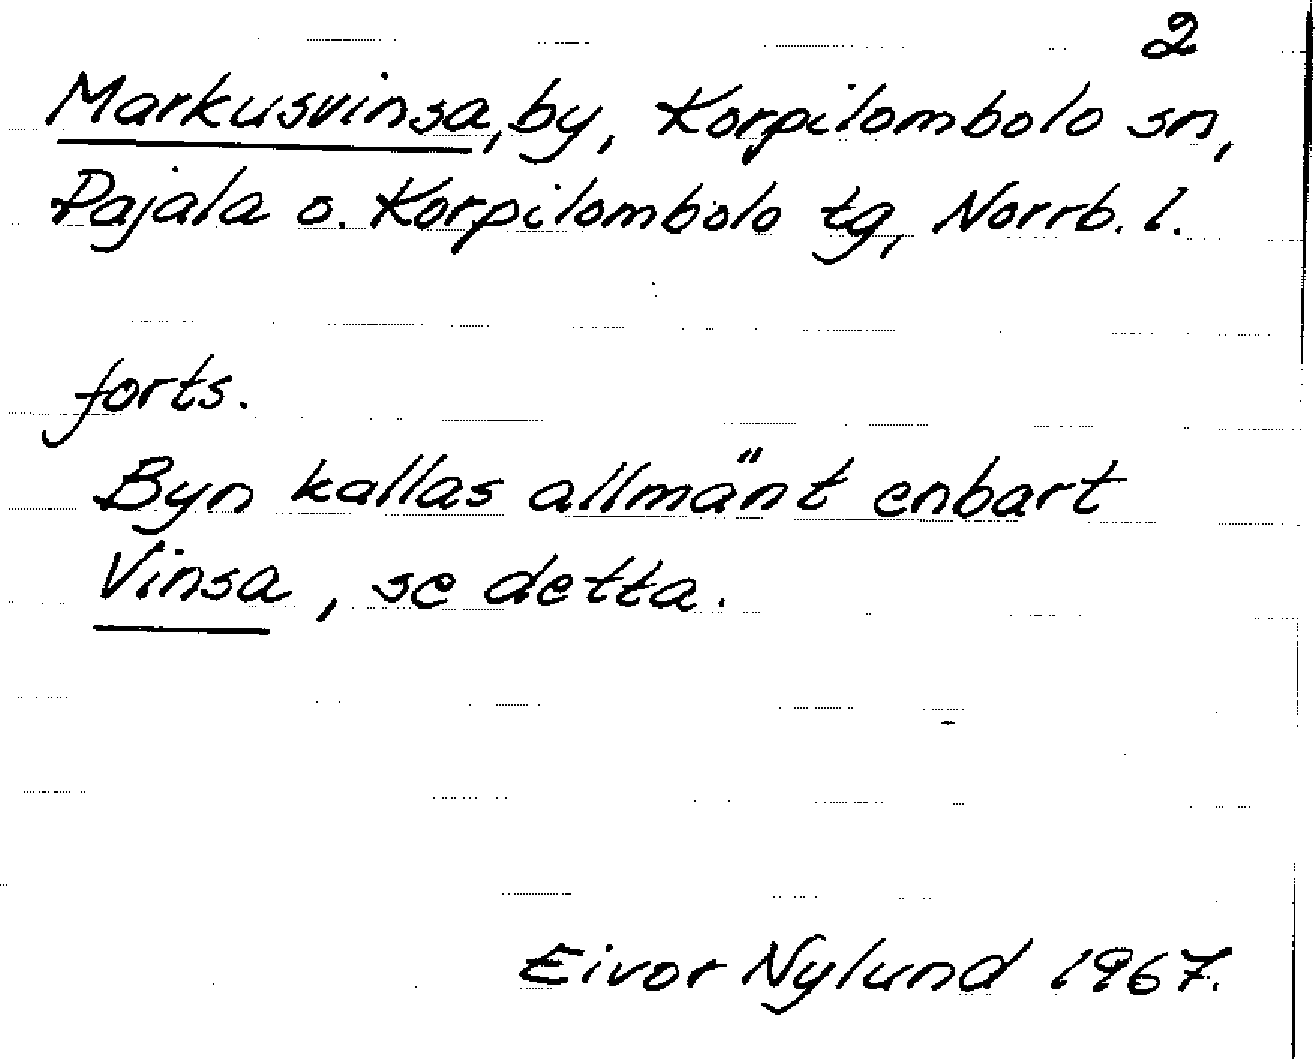 2
Markusvinsa, by, Korpilombolo sn,
Pajala o. Korpilombolo tg, Norrb. l.
forts.
Byn kallas allmänt enbart
Vinsa, se detta.
Eivor Nylund 1967.